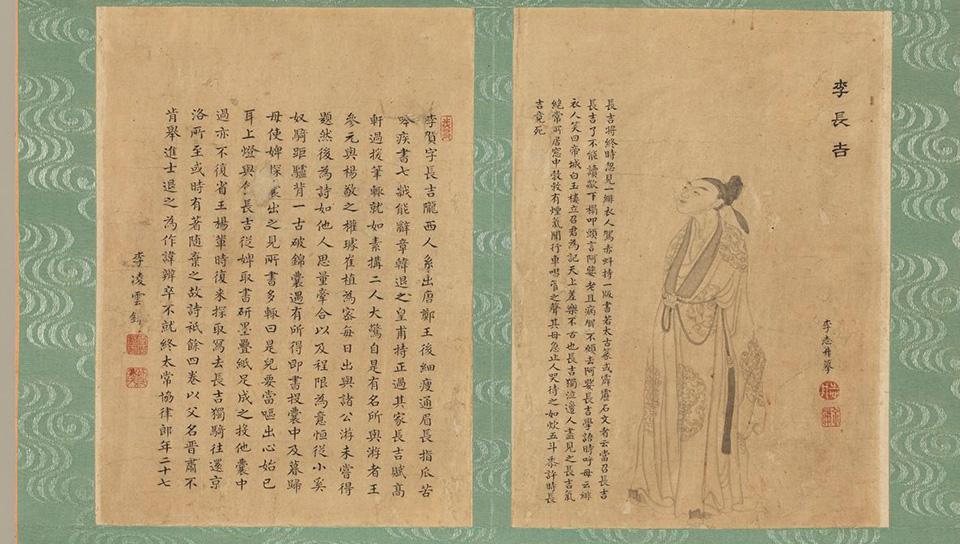 李長吉
長吉將終時忽見一緋衣人駕赤虯持一版書若太古篆或霹靂石文者云當召長吉
長吉了不能讀歘下榻叩頭言阿㜷老且病賀不願去阿㜷長吉學語時呼母云緋
衣人笑曰帝城白玉樓立召君為記天上差樂不苦也長吉獨泣邊人盡見之長吉氣
絕常所居窓中㪍㪍有煙氣聞行車嘒管之聲其母急止人哭待之如炊五斗黍許時長
吉竟死
李賀字長吉隴西人系出唐鄭王後細瘦通眉長指瓜苦
吟疾書七歲能辭章韓退之皇甫持正過其家長吉賦高
軒過援筆輒就如素搆二人大驚自是有名所與游者王
參元與楊敬之權璩崔植為密每日出與諸公游未嘗得
題然後為詩如他人思量牽合以及程限為意恒從小奚
奴騎距驢背一古破錦囊遇有所得即書投囊中及暮歸
母使婢探囊出之見所書多輒曰是兒要當嘔出心始已
耳上燈與食長吉從婢取書研墨疊紙足成之投他囊中
過亦不復省王楊輩時復來探取寫去長吉獨騎往還京
洛所至或時有著隨棄之故詩祗餘四卷以父名晉肅不
肯舉進士退之為作諱辨卒不就終太常協律郎年二十七
李凌雲錄